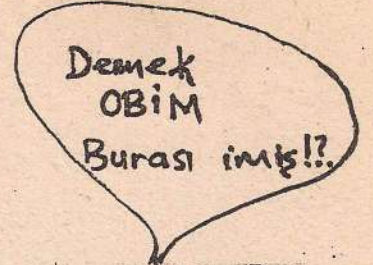 Demek
OBİM
Burası imiş!?.